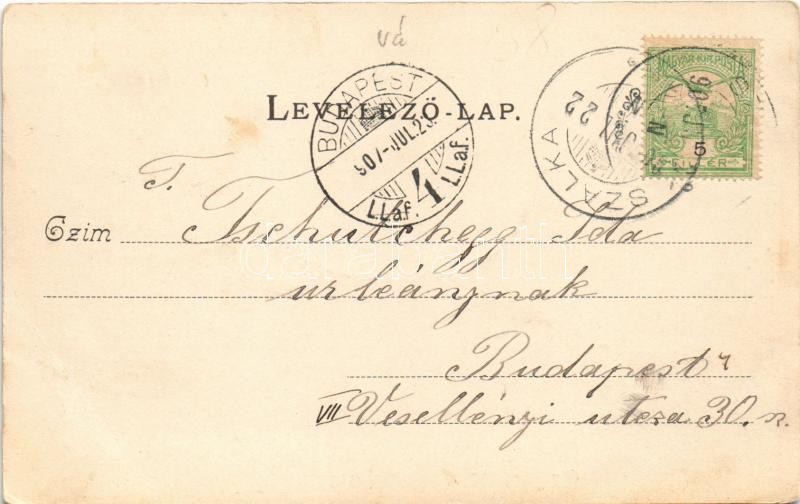 vá
BUDAPEST
907 JUL. 23.
4
L.L.a.f. L.L.a.f.
SZALKA
22
MAGYAR KIR. POSTA
5
FILLÉR
LEVELEZŐ-LAP.
T.
Czim Tschurtchegg Ida
urleánynak
Budapest
VII Vesellényi utcza 30. sz.
darabanth